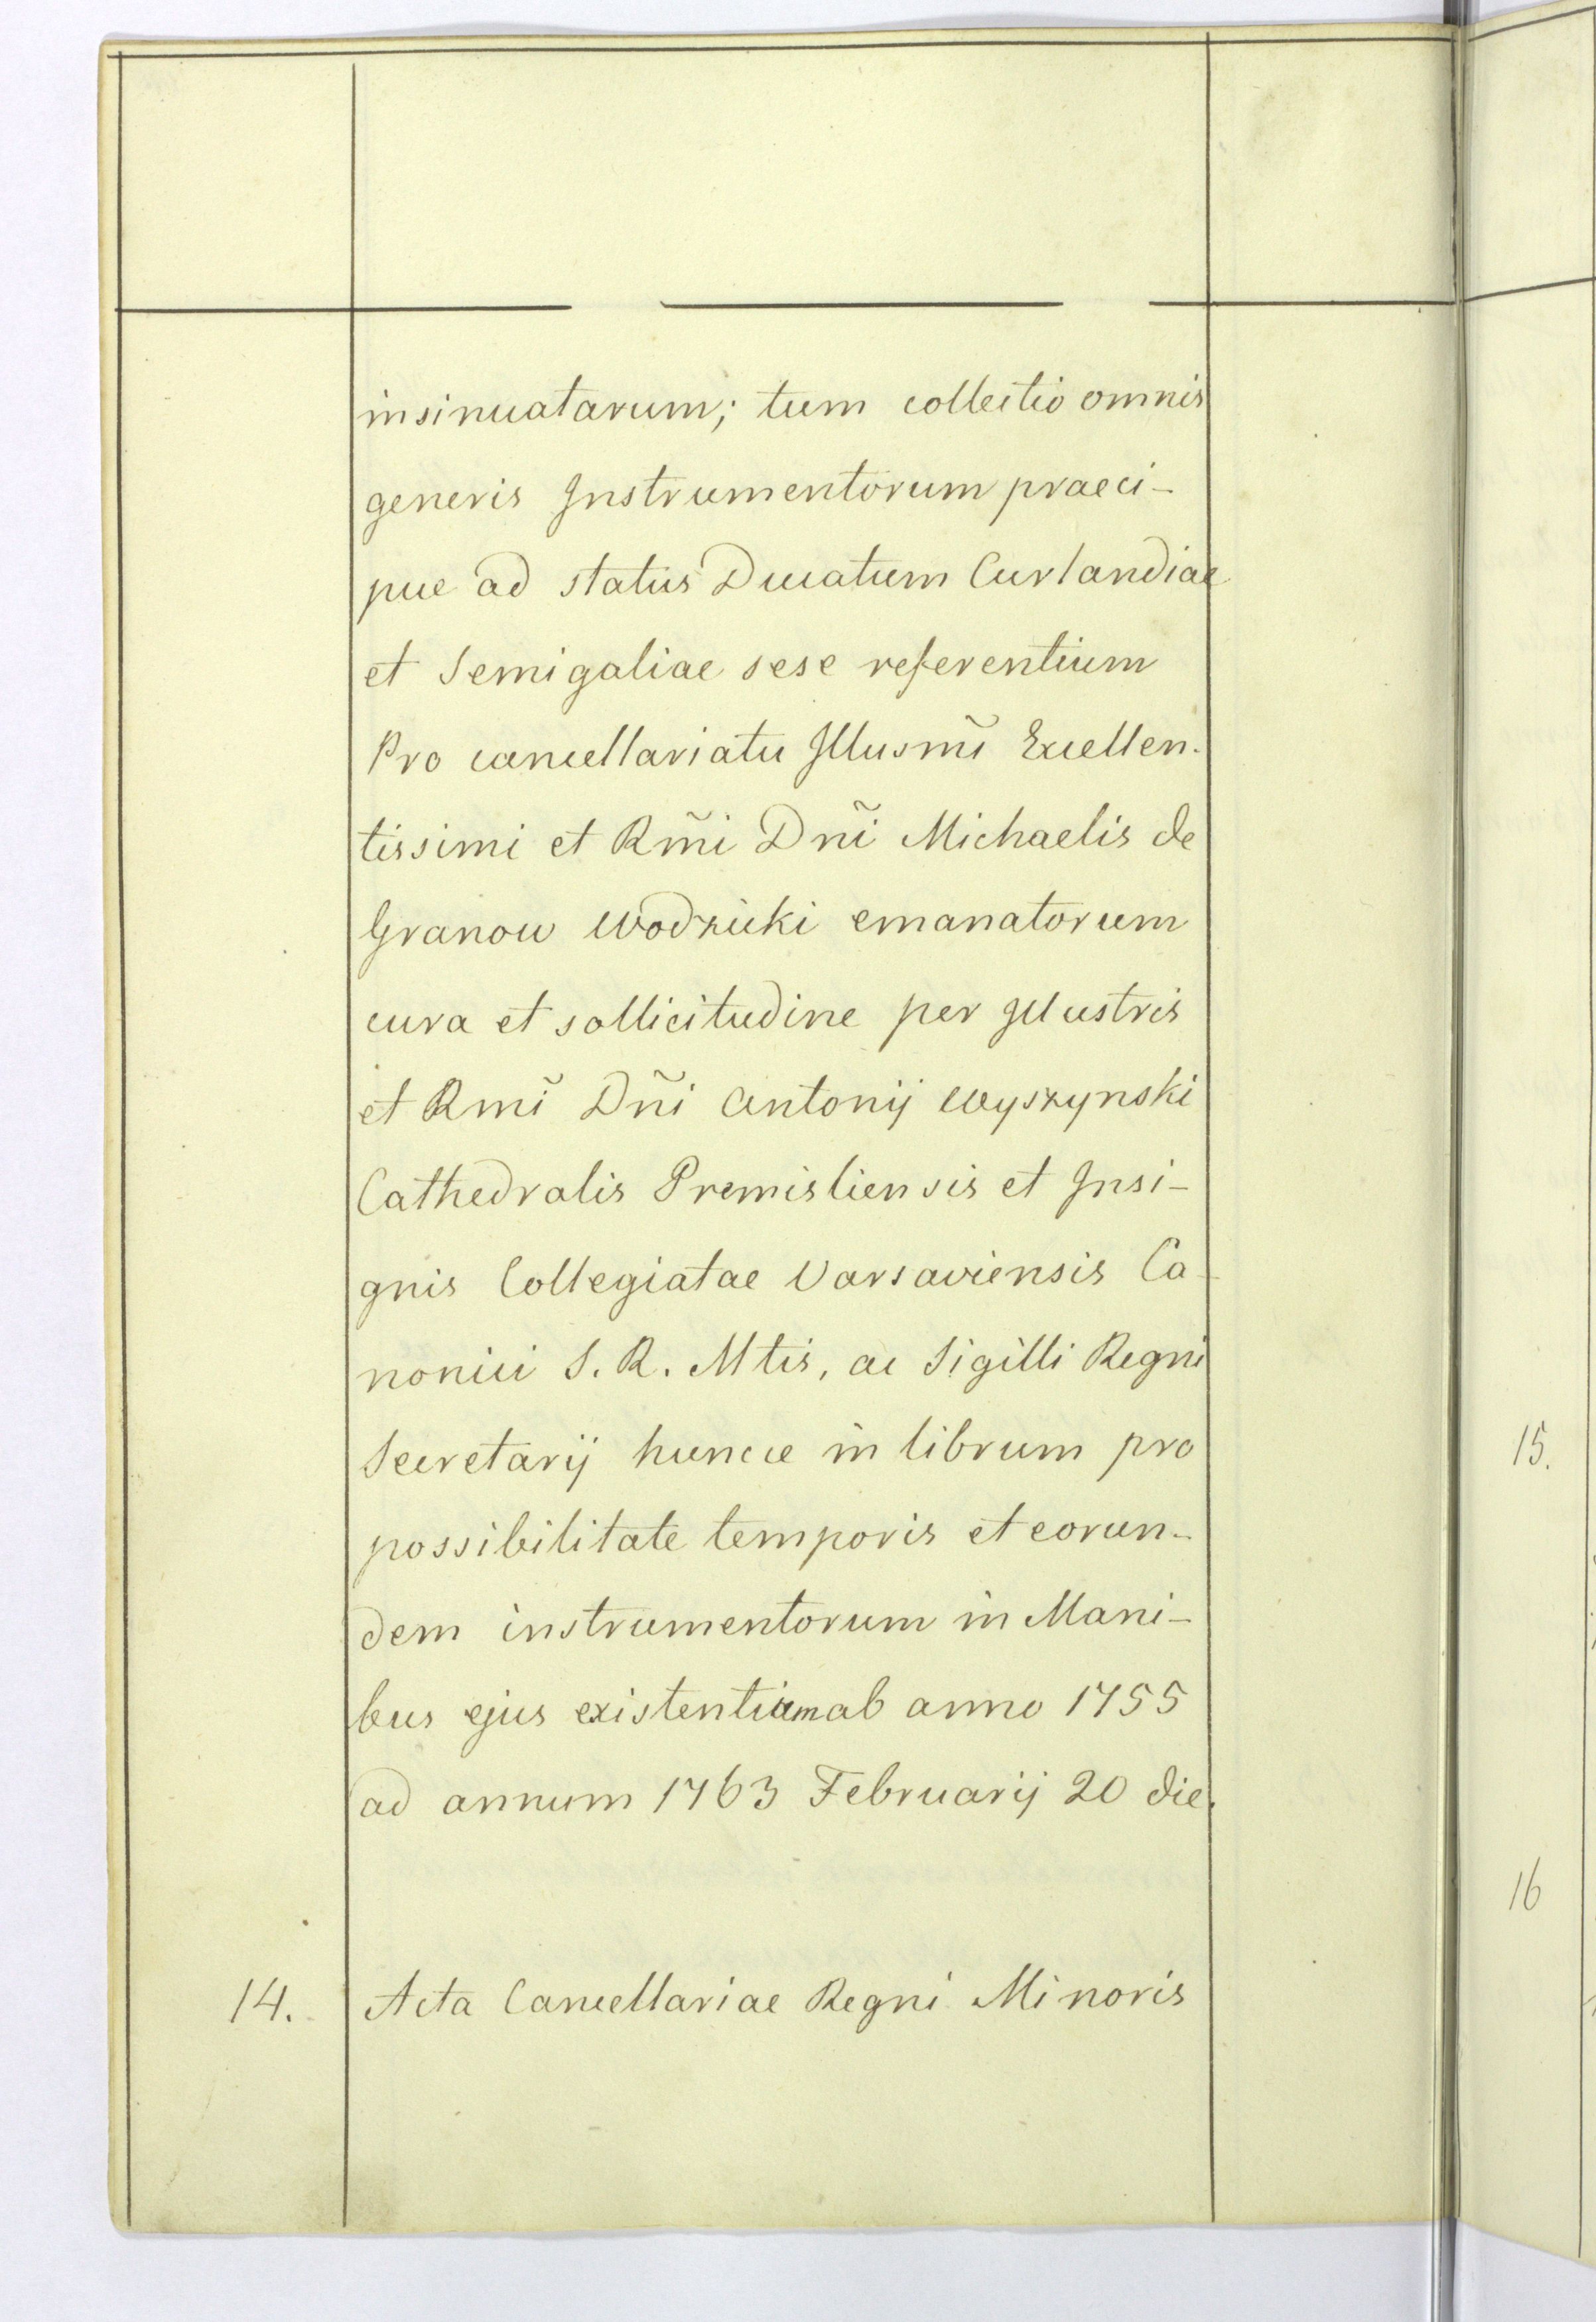 insinuatarum; tum collectio omnis
generis Instrumentorum praeci-
pue ad status Ducatum Curlandiae
et Semigaliae sese referentium
Pro cancellariatu Illusm̃i Excellen-
tissimi et Rm̃i Dn̄i Michaelis de
Granow Wodzicki emanatorum
cura et sollicitudine per Illustris
et Rm̃i Dñi Antonij Wyszynski
Cathedralis Premisliensis et Insi-
gnis Collegiatae Varsaviensis Ca-
nonici S. R. Mtis, ac Sigilli Regni
Secretarij huncce in librum pro
possibilitate temporis et eorun-
dem instrumentorum in Mani-
bus ejus existentium ab anno 1755
ad annum 1763 Februarij 20 die.
14. Acta Cancellariae Regni Minoris
15.
16